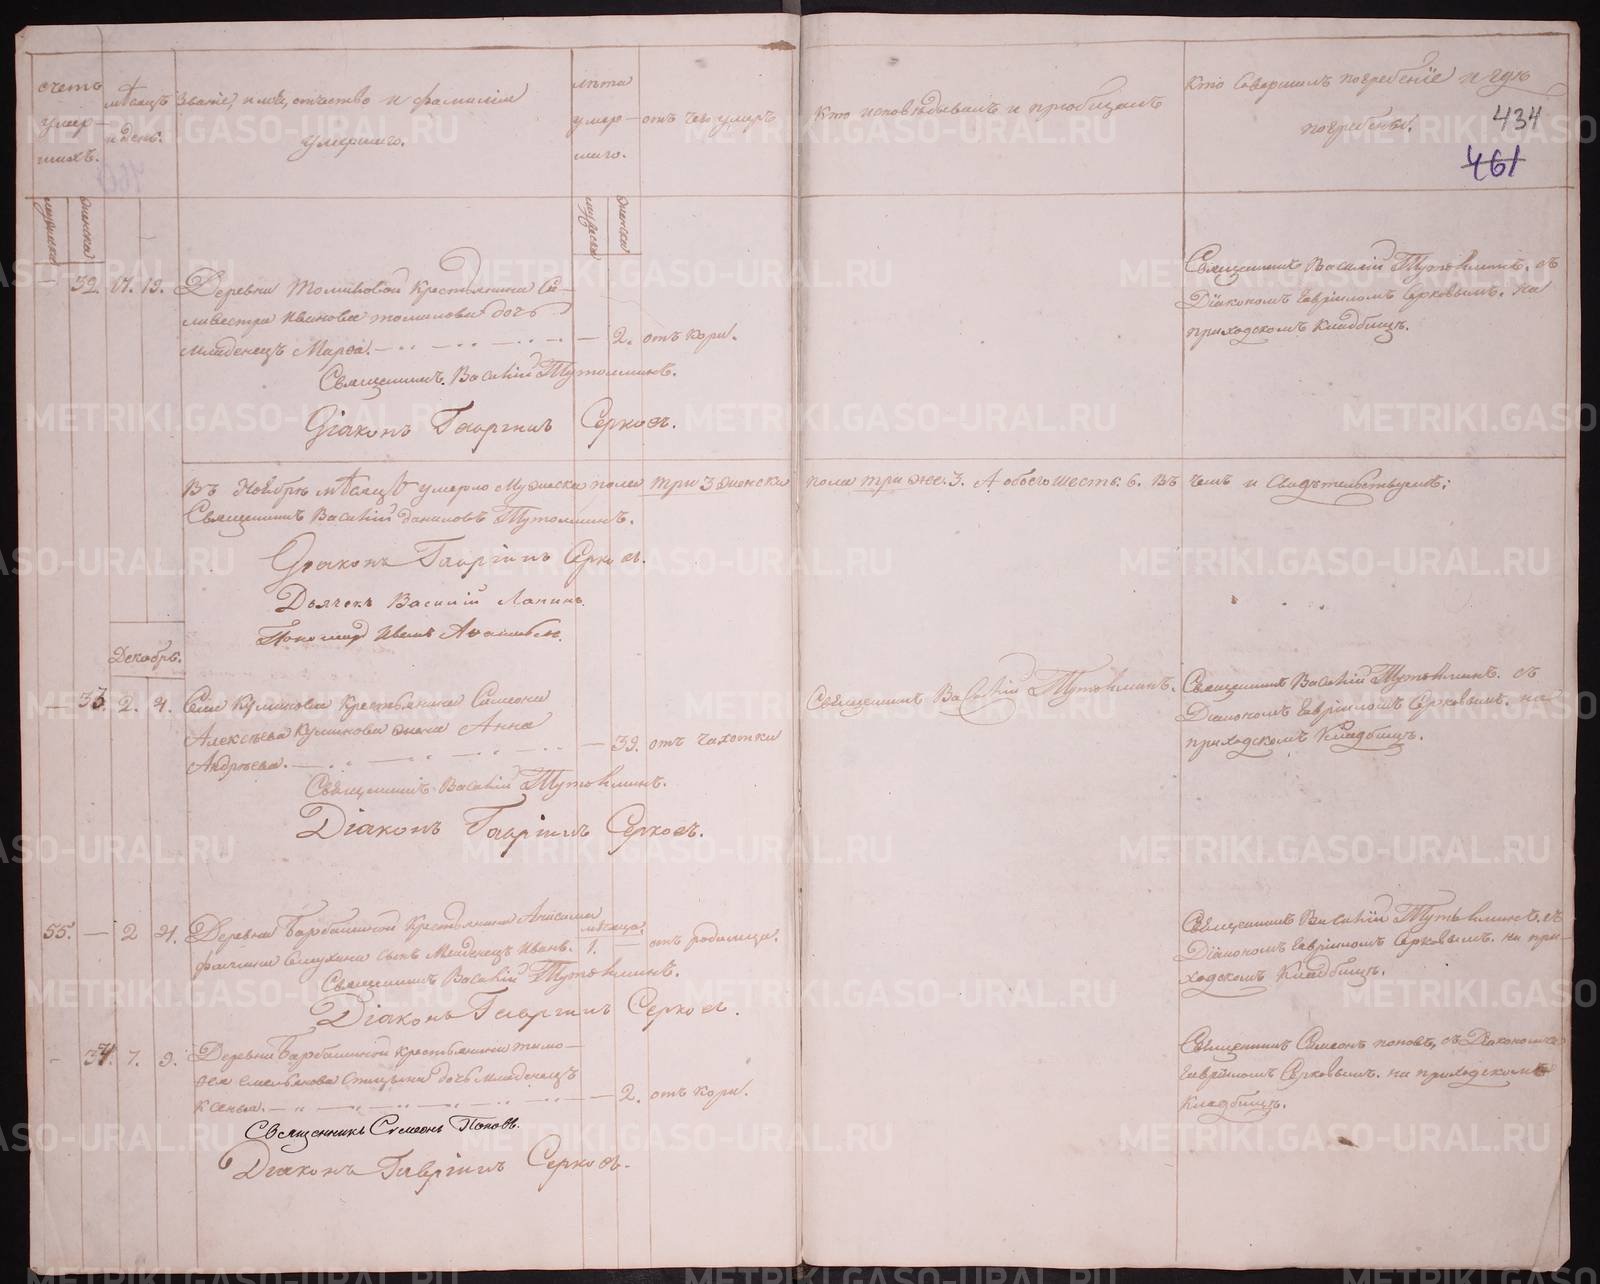 счетъ умер-шихъ.
мѣсяцъ и день.
Званіе, имя, отчество и фамилія умершаго.
лѣта умер-шаго.
отъ чего умеръ
Кто исповѣдывалъ и пріобщалъ
Кто совершалъ погребеніе и гдѣ погребены.
434
461
мужеска
женска
мужеска
женска
— 32. 17. 19. Деревни Томиловой крестьянина Си-
ливестра Иванова Томилова дочь
младенецъ Марѳа. — 2. отъ кори.
Священникъ Василій Тутолминъ. съ
Діакономъ Гавріиломъ Серковымъ. на
приходскомъ кладбищѣ.
Священникъ Василій Тутолминъ.
Діаконъ Гавріилъ Серковъ.
Въ Ноябрѣ мѣсяцѣ умерло мужеска пола три 3 женска пола три же. 3. А обоего шесть. 6. Въ чемъ и свидѣтельствуемъ:
Священникъ Василій Даниловъ Тутолминъ.
Діаконъ Гавріилъ Серковъ.
Дьячекъ Василій Лапинъ.
Пономарь Иванъ
Декабрь.
— 33. 2. 4. Села Куминова крестьянина Симеона
Алексѣева Куминова жена Анна
Андрѣева. — 39. отъ чахотки
Священникъ Василій Тутолминъ.
Священникъ Василій Тутолминъ. съ
Діакономъ Гавріиломъ Серковымъ. на
приходскомъ кладбищѣ.
Священникъ Василій Тутолминъ.
Діаконъ Гавріилъ Серковъ.
55. — 2 4. Деревни Барбашиной крестьянина Анисима
сынъ младенецъ Иванъ. мѣсяца. 1. — отъ родимца.
Священникъ Василій Тутолминъ. съ
Діакономъ Гавріиломъ Серковымъ. на при-
ходскомъ кладбищѣ.
Священникъ Василій Тутолминъ.
Діаконъ Гавріилъ Серковъ.
— 34. 7. 9. Деревни Барбашиной крестьянина Тимо-
ѳея Емельянова дочь младенецъ
Ксенья. — 2. отъ кори.
Священникъ Симеонъ Поповъ, съ Діакономъ
Гавріиломъ Серковымъ. на приходскомъ
кладбищѣ.
Священникъ Симеонъ Поповъ.
Діаконъ Гавріилъ Серковъ.
METRIKI.GASO-URAL.RU